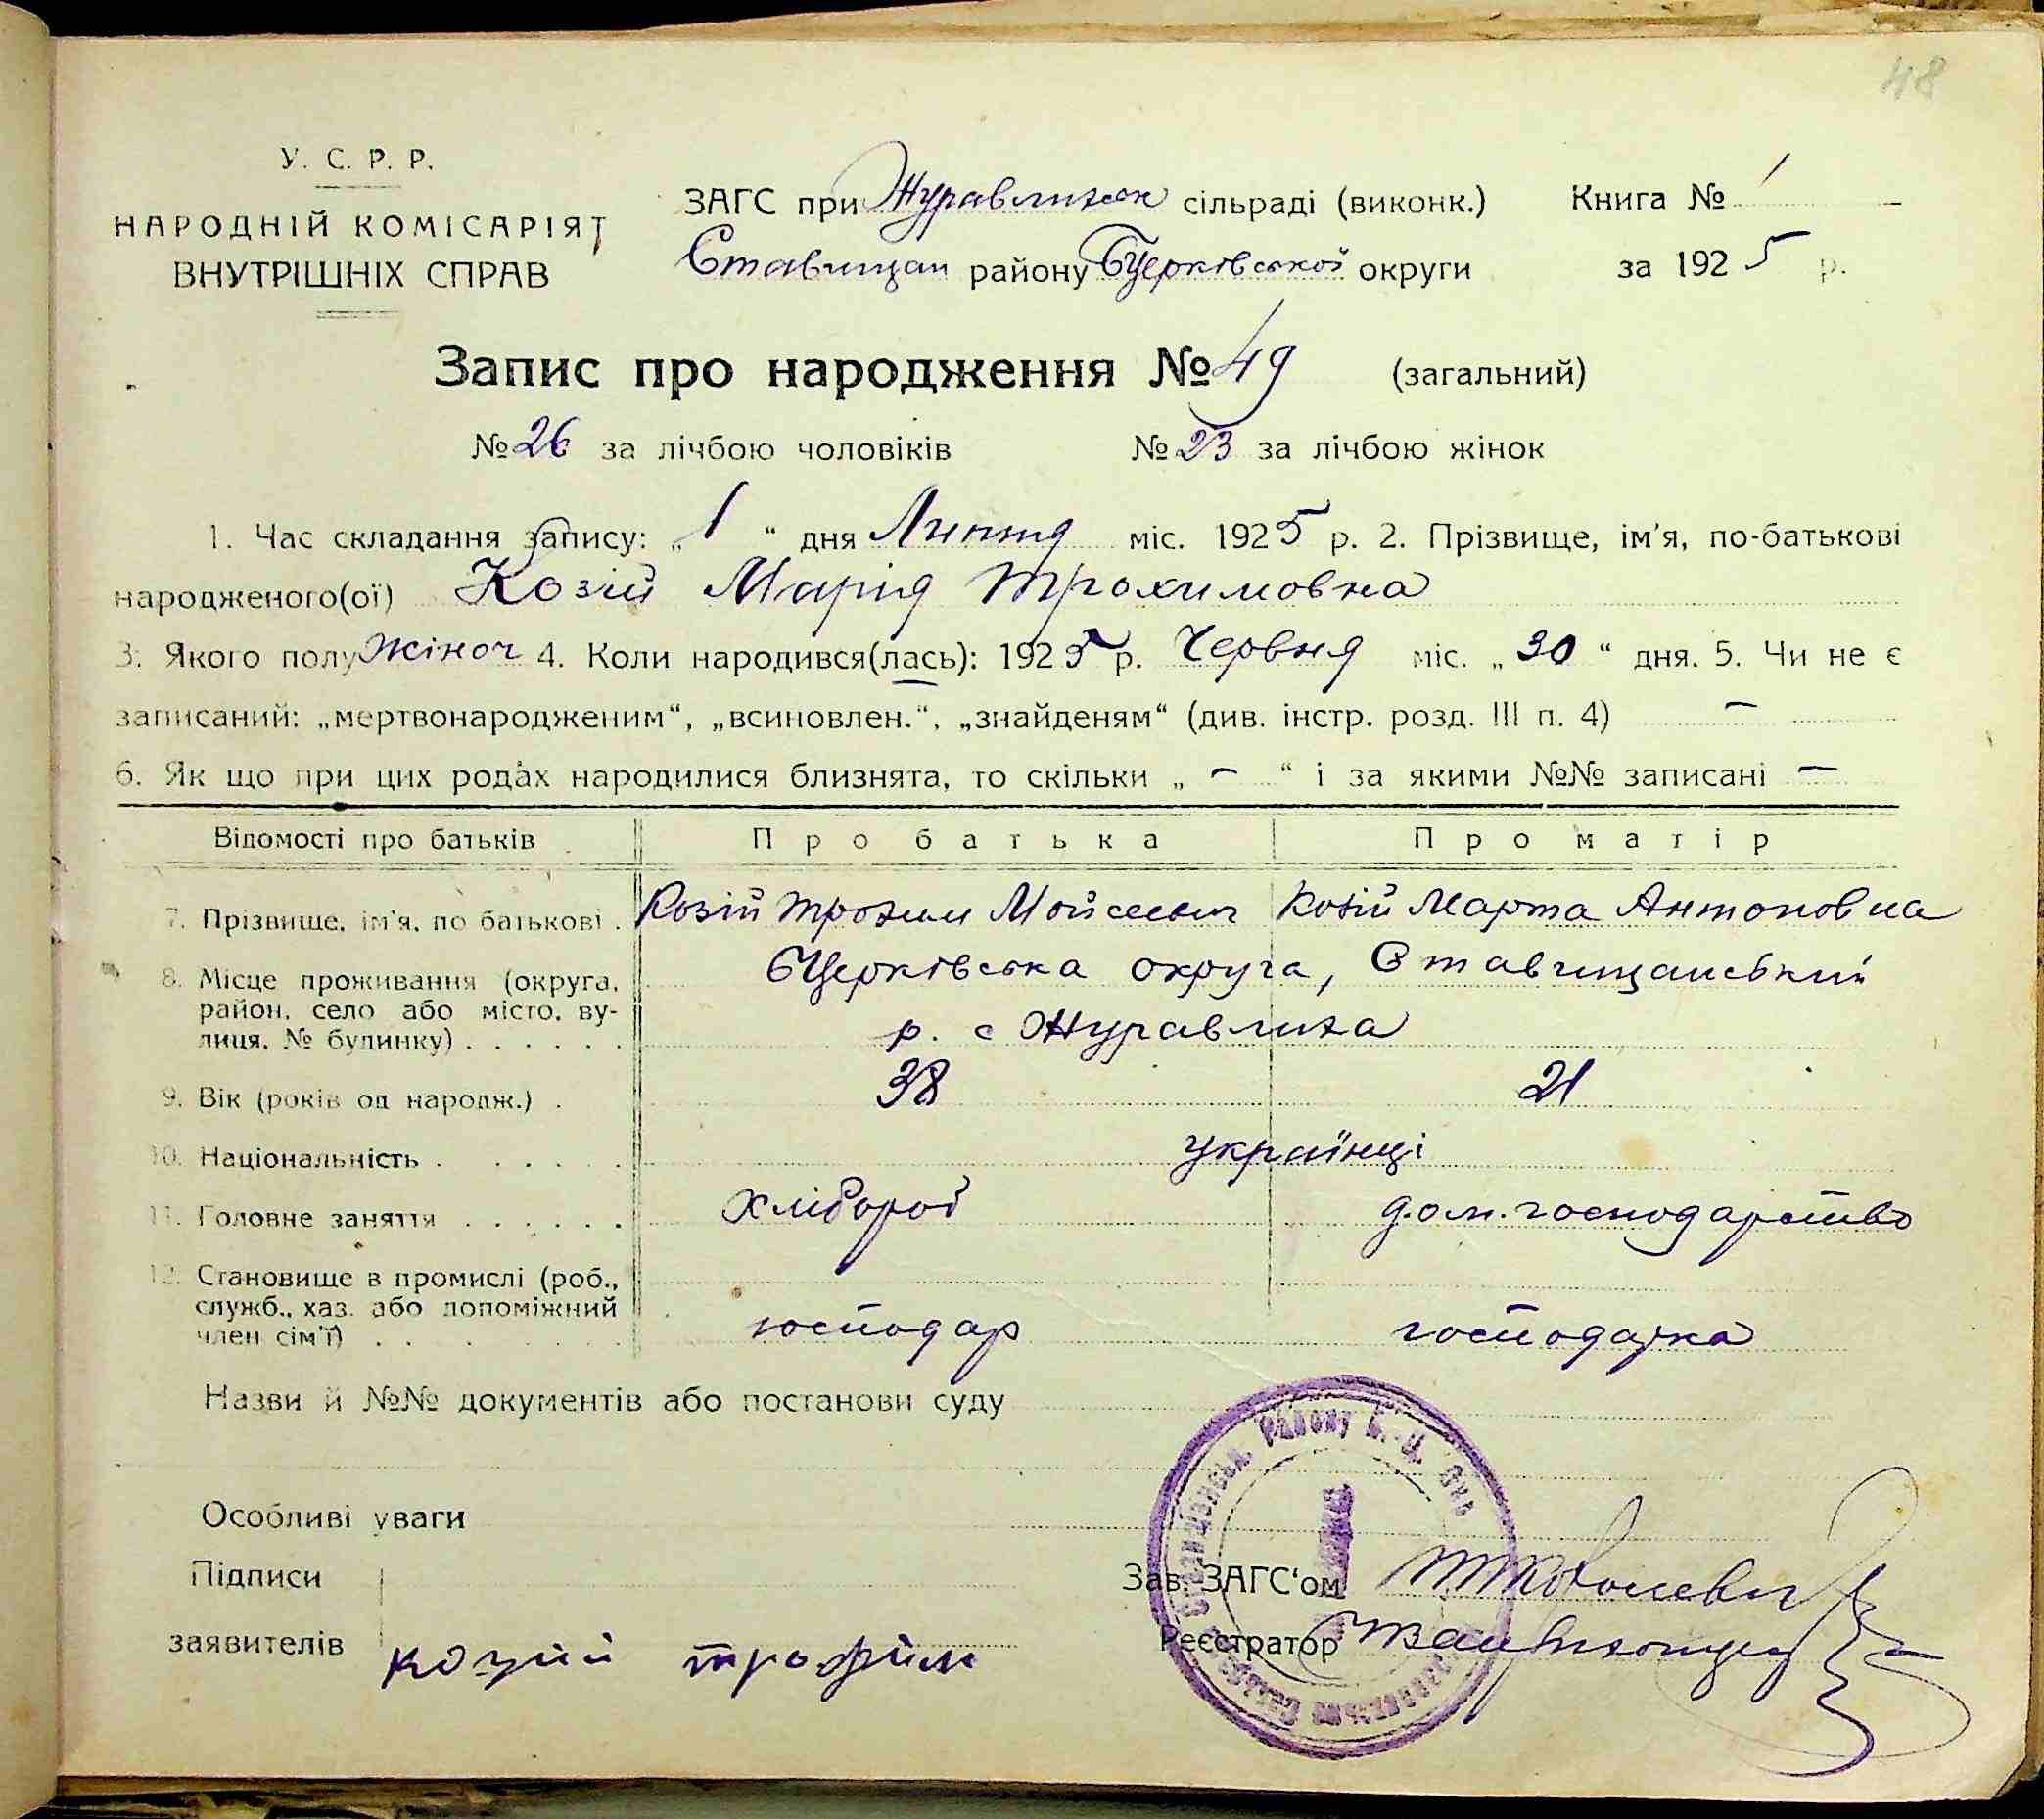 48
У. С. Р. Р.
НАРОДНІЙ КОМІСАРІЯТ
ВНУТРІШНІХ СПРАВ
ЗАГС при Журавлиськ сільраді (виконк.) Книга № 1
Ставищан району Бцерківської округи за 1925 р.
Запис про народження № 49 (загальний)
№ 26 за лічбою чоловіків № 23 за лічбою жінок
1. Час складання запису: „1“ дня Липня міс. 1925 р. 2. Прізвище, ім'я, по-батькові
народженого(ої) Козій Марія Трохимовна
3. Якого полу жіноч 4. Коли народився(лась): 1925 р. Червня міс. „30“ дня. 5. Чи не є
записаний: „мертвонародженим“, „всиновлен.“, „знайденям“ (див. інстр. розд. III п. 4) —
6. Як що при цих родах народилися близнята, то скільки „—“ і за якими №№ записані —
Відомості про батьків Про батька Про матір
7. Прізвище, ім'я, по батькові . Козій Трохим Мойсеевич Козій Марта Антоновна
8. Місце проживання (округа, район, село або місто, ву-лиця, № будинку) . . . . . . БЦерківська округа, Ставищанський
р. с Журавлиха
9. Вік (років од народж.) . 38 21
10. Національність . . . . . . українці
11. Головне заняття . . . . . . хлібороб дом. господарство
12. Становище в промислі (роб., служб., хаз. або допоміжний член сім'ї) . . господар господарка
Назви й №№ документів або постанови суду
Особливі уваги
Підписи
заявителів козий трофим
Зав. ЗАГС'ом
Реєстратор
Району Б.-Ц. Окр